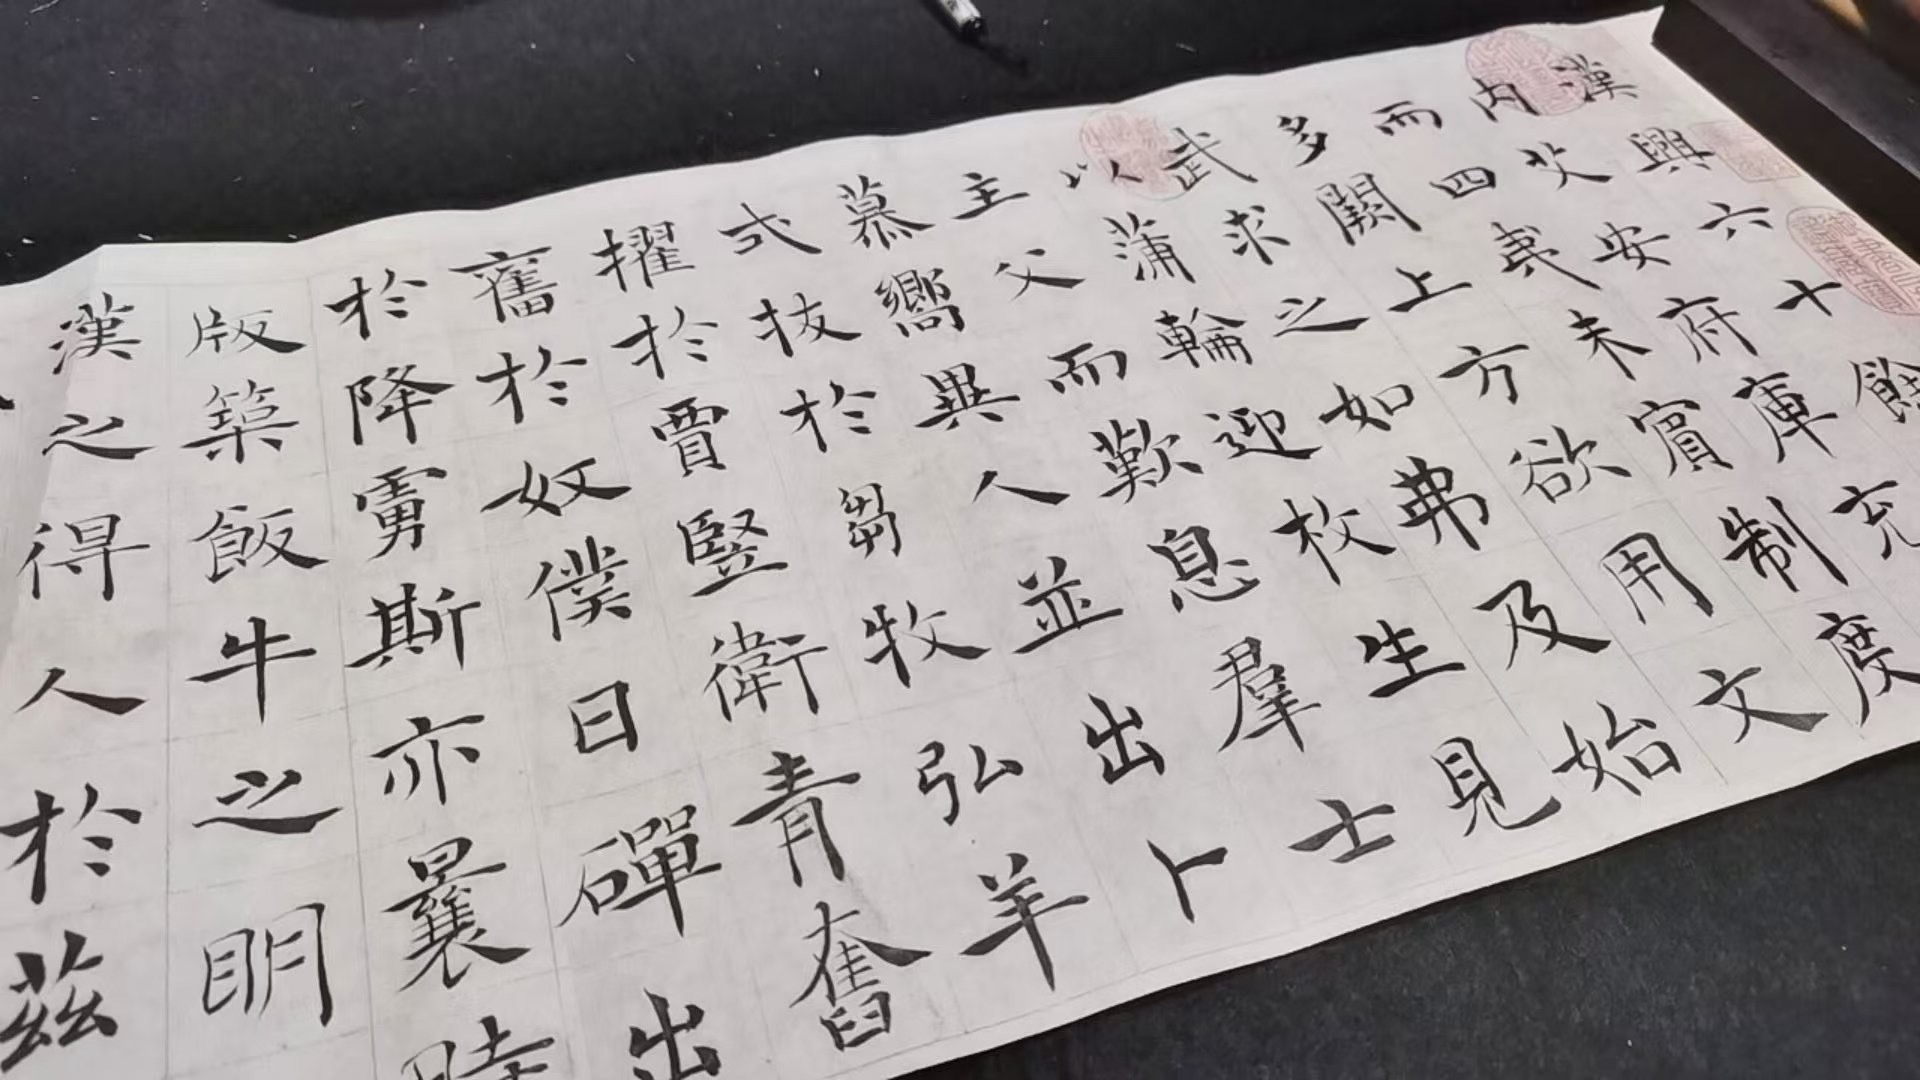 漢興六十餘
內艾安府庫充
而四夷未賓制度
多闕上方欲用文
武求之如弗及始
以蒲輪迎枚生見
主父而歎息羣士
慕嚮異人並出卜
式拔於芻牧弘羊
擢於賈豎衛青奮
奮於奴僕日磾出
於降虜斯亦曩時
版築飯牛之明
漢之得人於茲